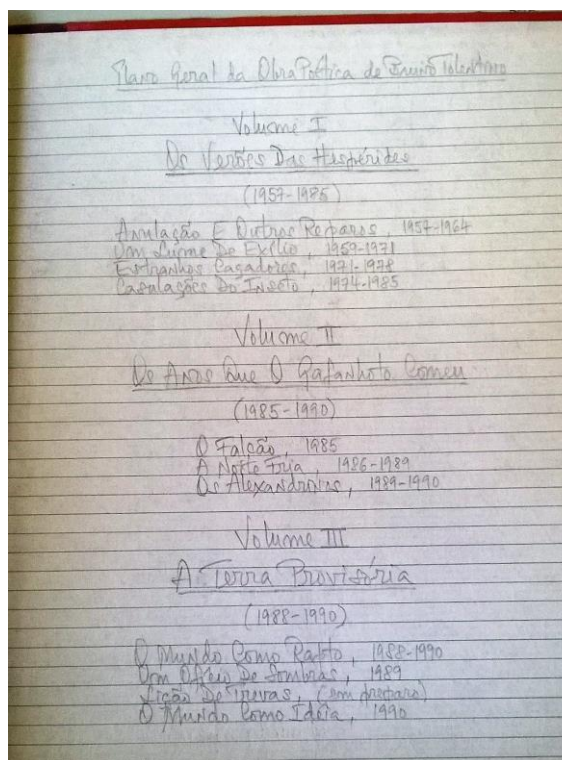 Plano Geral da Obra Poética de Bruno Tolentino
Volume I
Os Verões Das Hespérides
(1957-1985)
Anulação E Outros Reparos, 1957-1964
Um Lume De Exílio, 1959-1971
Estranhos Caçadores, 1971-1978
Do Inseto, 1974-1985
Volume II
Os Anos Que O Gafanhoto Comeu
(1985-1990)
O Falcão, 1985
A Noite Fria, 1986-1989
Os Alexandrinos, 1989-1990
Volume III
A Terra Provisória
(1988-1990)
O Mundo Como Rapto, 1988-1990
Um Ofício De Sombras, 1989
Lição De Trevas, (em preparo)
O Mundo Como Idéia, 1990